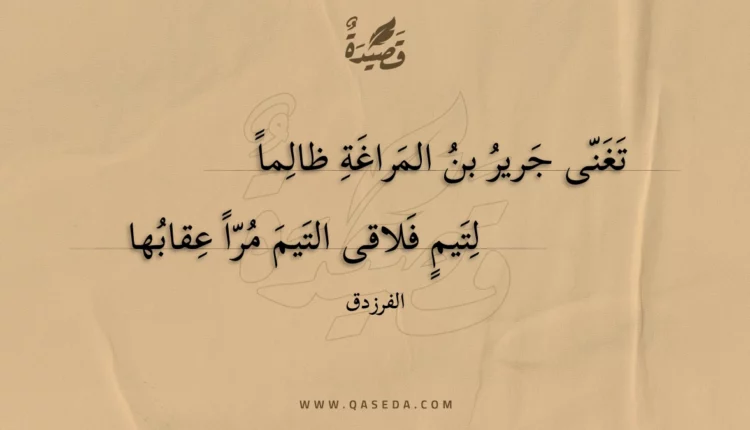 قَصِيْدَةٌ
تَغَنّى جَريرُ بنُ المَراغَةِ ظالِماً
لِتَيمٍ فَلاقى التَيمَ مُرّاً عِقابُها
الفرزدق
WWW.QASEDA.COM